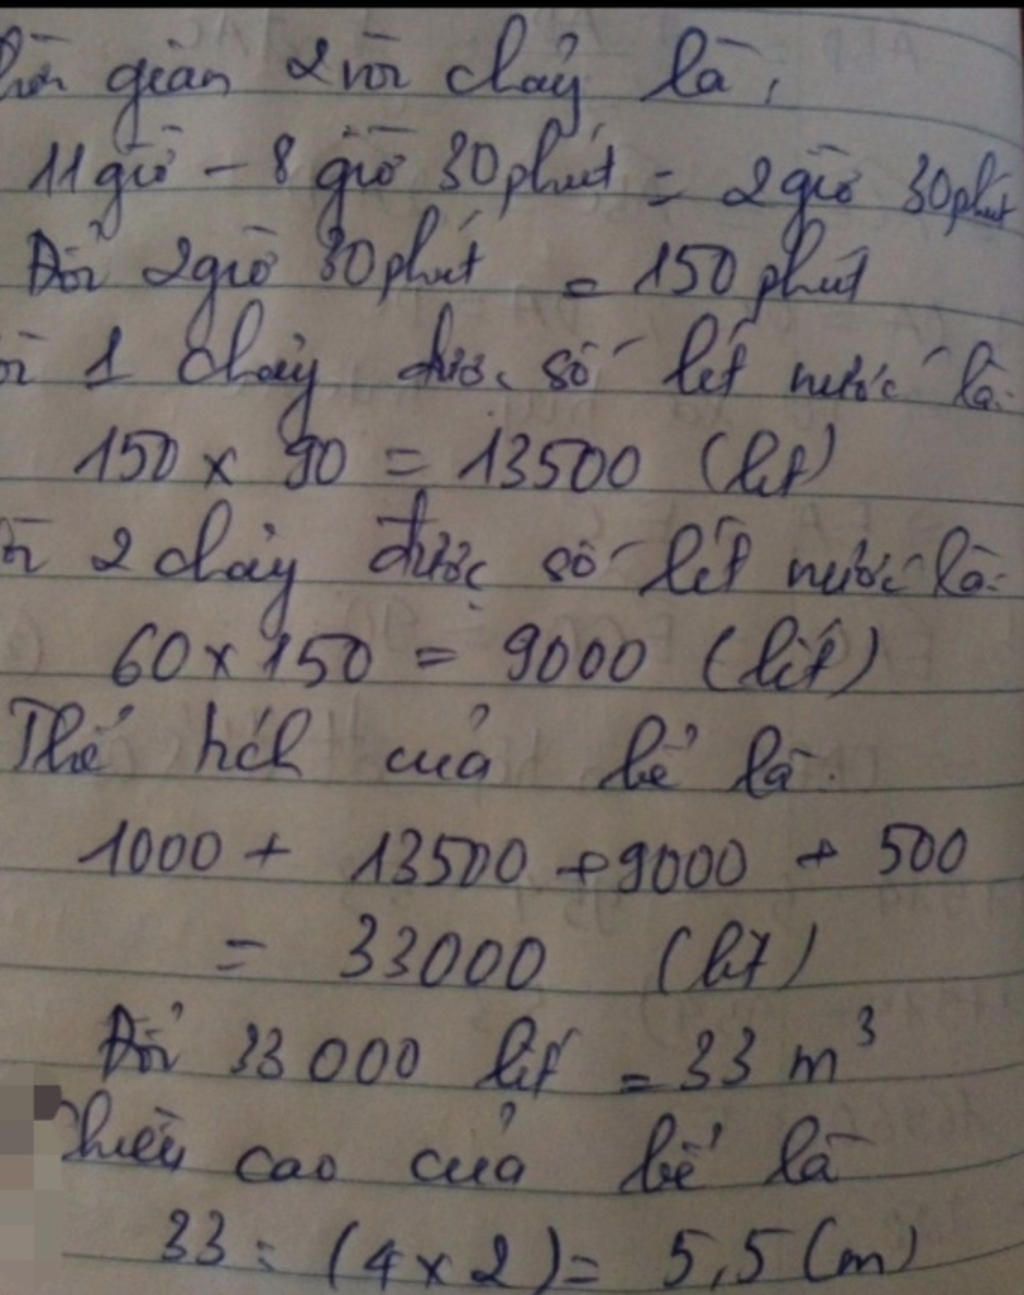 gian 2 vòi chảy là,
11 giờ - 8 giờ 30 phút = 2 giờ 30 phút
Đổi 2 giờ 30 phút = 150 phút
1 chảy được số lít nước là:
150 x 90 = 13500 (lít)
2 chảy được số lít nước là:
60 x 150 = 9000 (lít)
Thể tích của bể là:
1000 + 13500 + 9000 + 500
= 33000 (lít)
Đổi 33000 lít = 33 m³
Chiều cao của bể là
33 : (4 x 2) = 5,5 (m)